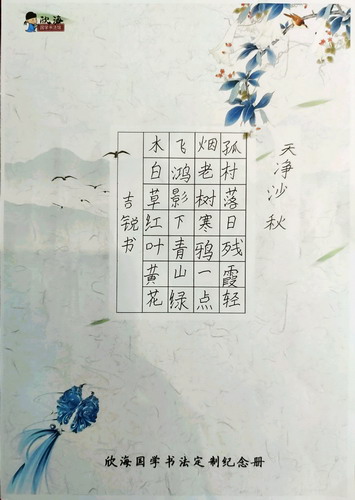 欣海
天净沙 秋
孤村落日残霞轻
烟老树寒鸦一点
飞鸿影下青山绿
水白草红叶黄花
吉锐书
欣海国学书法定制纪念册